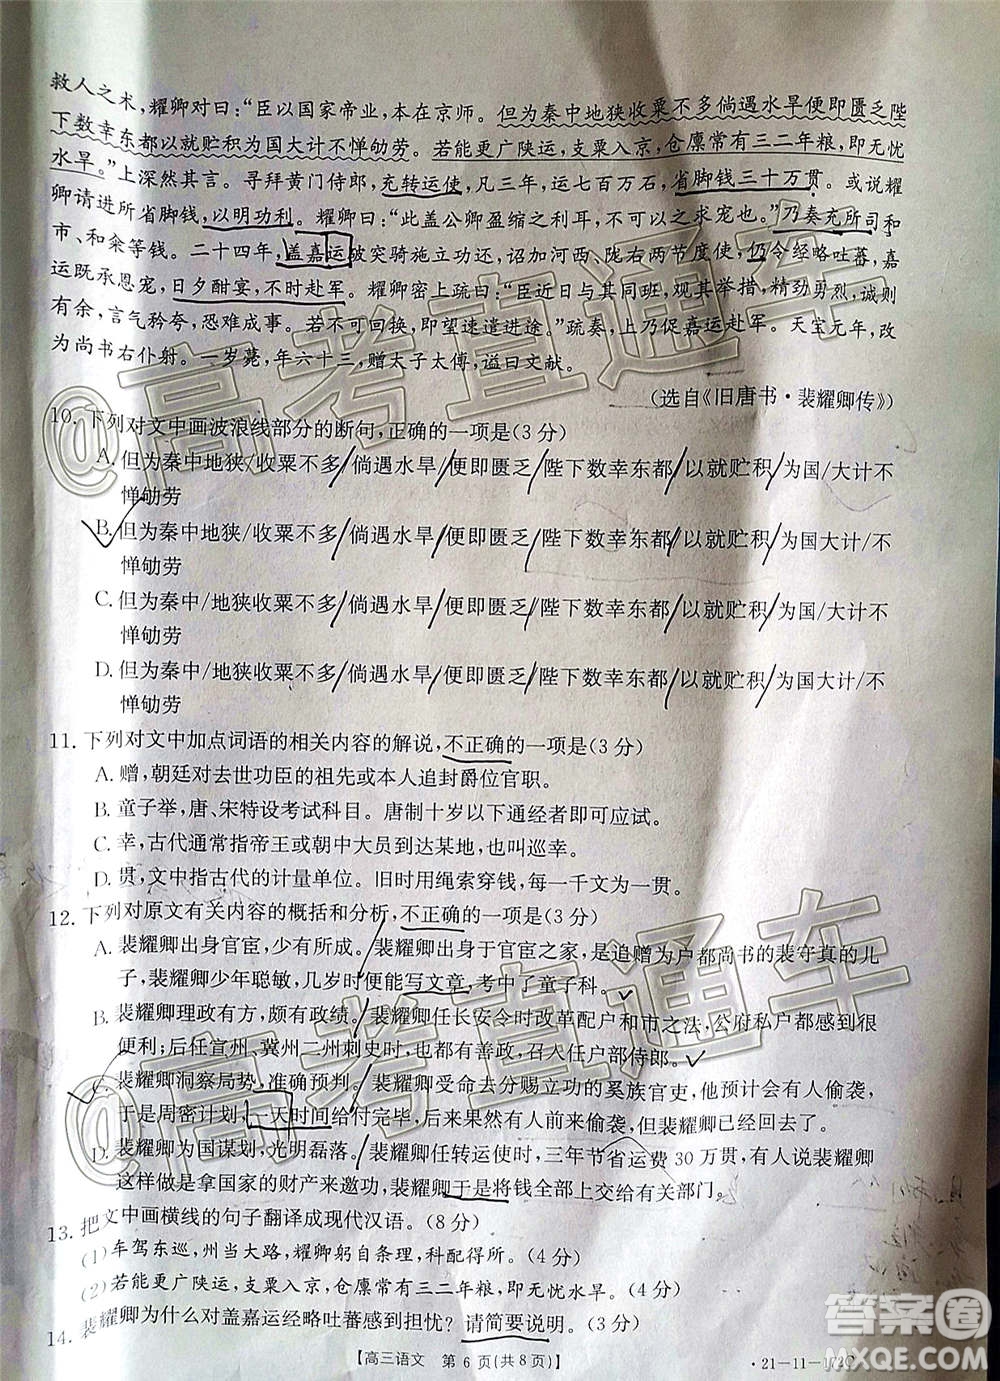 救人之术，耀卿对曰：“臣以国家帝业，本在京师。但为秦中地狭收粟不多倘遇水旱便即匮乏陛
下数幸东都以就贮积为国大计不惮劬劳。若能更广陕运，支粟入京，仓廪常有三二年粮，即无忧
水旱。”上深然其言。寻拜黄门侍郎，充转运使，凡三年，运七百万石，省脚钱三十万贯。或说耀
卿请进所省脚钱，以明功利。耀卿曰：“此盖公卿盈缩之利耳，不可以之求宠也。”乃奏充所司和
市、和籴等钱。二十四年，盖嘉运破突骑施立功还，诏加河西、陇右两节度使，仍令经略吐蕃，嘉
运既承恩宠，日夕酣宴，不时赴军。耀卿密上疏曰：“臣近日与其同班，观其举措，精劲勇烈，诚则
有余，言气矜夸，恐难成事。若不可回换，即望速遣进途。”疏奏，上乃促嘉运赴军。天宝元年，改
为尚书右仆射。一岁薨，年六十三，赠太子太傅，谥曰文献。
（选自《旧唐书·裴耀卿传》）
10. 下列对文中画波浪线部分的断句，正确的一项是（3 分）
A. 但为秦中地狭/收粟不多/倘遇水旱/便即匮乏/陛下数幸东都/以就贮积/为国/大计不
惮劬劳
B. 但为秦中地狭/收粟不多/倘遇水旱/便即匮乏/陛下数幸东都/以就贮积/为国大计/不
惮劬劳
C. 但为秦中/地狭收粟不多/倘遇水旱/便即匮乏/陛下数幸东都/以就贮积/为国/大计/不
惮劬劳
D. 但为秦中/地狭收粟不多/倘遇水旱/便即匮乏/陛下数幸东都/以就贮积/为国大计/不
惮劬劳
11. 下列对文中加点词语的相关内容的解说，不正确的一项是（3 分）
A. 赠，朝廷对去世功臣的祖先或本人追封爵位官职。
B. 童子举，唐、宋特设考试科目。唐制十岁以下通经者即可应试。
C. 幸，古代通常指帝王或朝中大员到达某地，也叫巡幸。
D. 贯，文中指古代的计量单位。旧时用绳索穿钱，每一千文为一贯。
12. 下列对原文有关内容的概括和分析，不正确的一项是（3 分）
A. 裴耀卿出身官宦，少有所成。裴耀卿出身于官宦之家，是追赠为户都尚书的裴守真的儿
子，裴耀卿少年聪敏，几岁时便能写文章，考中了童子科。
B. 裴耀卿理政有方，颇有政绩。裴耀卿任长安令时改革配户和市之法，公府私户都感到很
便利；后任宣州、冀州二州刺史时，也都有善政，召入任户部侍郎。
C. 裴耀卿洞察局势，准确预判。裴耀卿受命前去分赐立功的奚族官吏，他预计会有人偷袭，
于是周密计划，一天时间给付完毕，后来果然有人前来偷袭，但裴耀卿已经回归。
D. 裴耀卿为国谋划，光明磊落。裴耀卿任转运使时，三年节省运费 30 万贯，有人说裴耀卿
这样做是拿国家的财产来邀功，裴耀卿于是将钱全部上交给有关部门。
13. 把文中画横线的句子翻译成现代汉语。（8 分）
(1) 车驾东巡，州当大路，耀卿躬自条理，科配得所。（4 分）
(2) 若能更广陕运，支粟入京，仓廪常有三二年粮，即无忧水旱。（4 分）
14. 裴耀卿为什么对盖嘉运经略吐蕃感到担忧？请简要说明。（3 分）
【高三语文　第 6 页（共 8 页）】
·21—11—172C·
@高考直通车
@高考直通车
答案圈
MXQE.COM